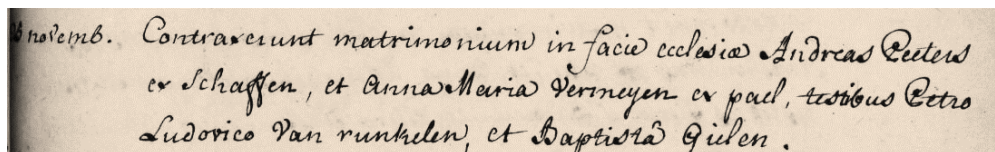 26 novemb. Contraxerunt matrimonium in facie ecclesiæ Andreas Peeters
ex Schaffen, et Anna Maria Vermeyen ex pael, testibus Petro
Ludovico Van runkelen, et Baptistâ Gielen.